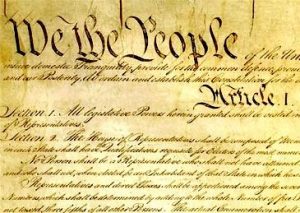 We the People
of the Uni
insure domestic Tranquility, provide for the common defence, promo
and our Posterity, do ordain and establish this Constitution for the
Article. I.
Section. 1. All legislative Powers herein granted shall be vested
of Representatives.
Section. 2. The House of Representatives shall be composed of Mem
in each State shall have Qualifications requisite for Electors of the most
No Person shall be a Representative who shall not have attained
and who shall not, when elected, be an Inhabitant of that State in which he
Representatives and direct Taxes shall be apportioned among the seve
Numbers, which shall be determined by adding to the whole Number of free
not taxed, three fifths of all other Persons. The actual Enumeration